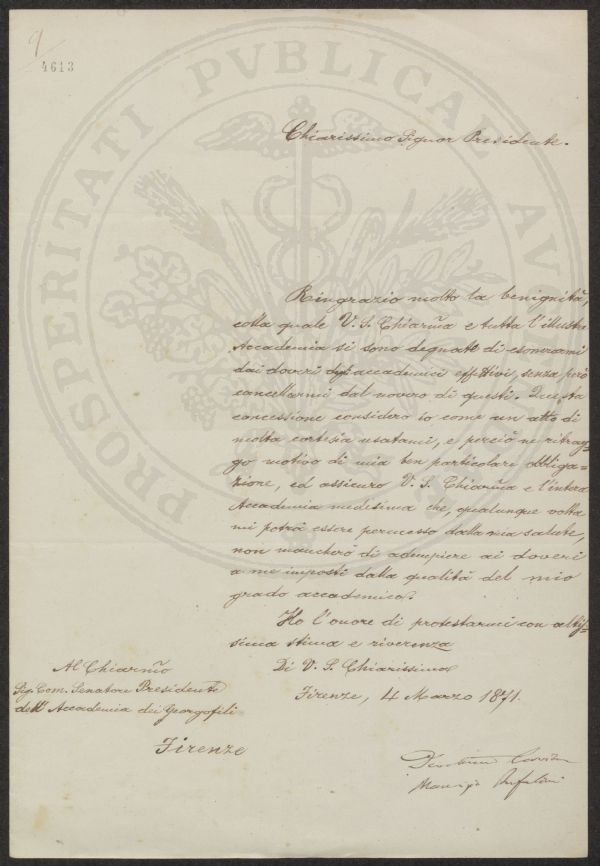 9
4613
PROSPERITATI PVBLICAE AVG
Chiarissimo Signor Presidente.
Ringrazio molto la benignità,
colla quale V. S. Chiarm̃a e tutta l'illustre
Accademia si sono degnate di esonerarmi
dai doveri degli accademici effettivi, senza però
cancellarmi dal novero di questi. Questa
concessione considero io come un atto di
molta cortesia usatami, e perciò ne ritrag=
go motivo di mia ben particolare obbliga=
zione, ed assicuro V. S. Chiarm̃a e l'intera
Accademia medesima che, qualunque volta
mi potrà essere permesso dalla mia salute,
non mancherò di adempiere ai doveri
a me imposti dalla qualità del mio
grado accademico.
Ho l'onore di protestarmi con altis=
sima stima e riverenza
Di V. S. Chiarissima
Firenze, 4 Marzo 1871.
Al Chiarm̃o
Sig. Com. Senatore Presidente
dell'Accademia dei Georgofili
Firenze
Maurizio Bufalini